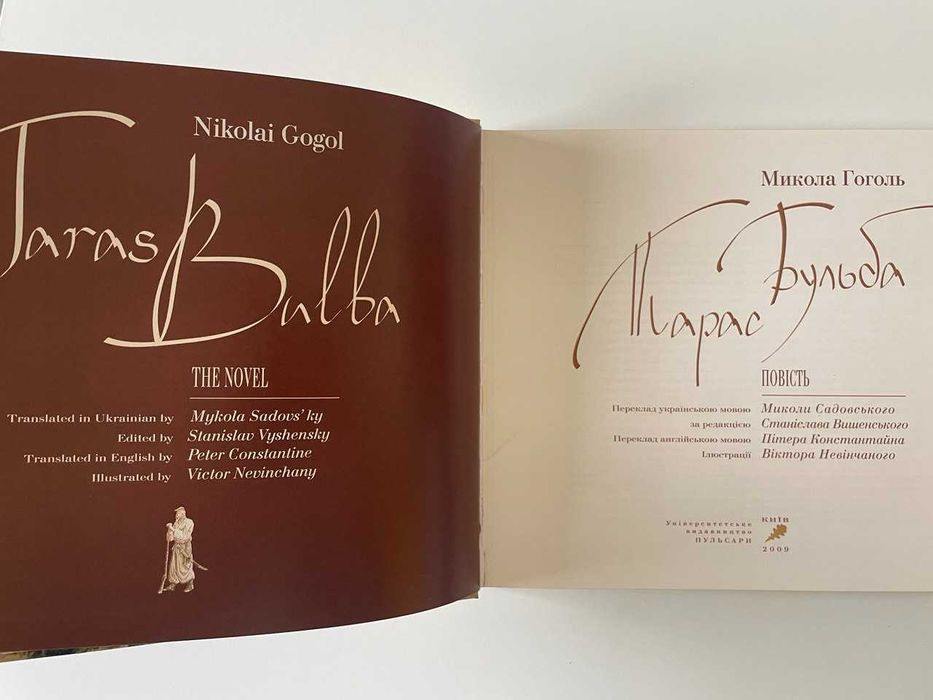 Nikolai Gogol
Taras Bulba
THE NOVEL
Translated in Ukrainian by Mykola Sadovs'ky
Edited by Stanislav Vyshensky
Translated in English by Peter Constantine
Illustrated by Victor Nevinchany
Микола Гоголь
Тарас Бульба
ПОВІСТЬ
Переклад українською мовою Миколи Садовського
за редакцією Станіслава Вишенського
Переклад англійською мовою Пітера Константайна
Ілюстрації Віктора Невінчаного
Університетське
видавництво
ПУЛЬСАРИ
КИЇВ
2009